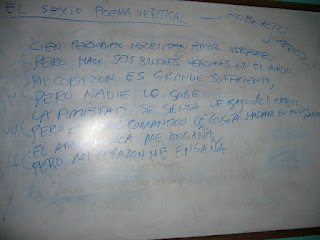 EL SEXTO POEMA VERTICAL ROBERTO
CIEN PERSONAS NECESITAN AMOR VERDADERO
PERO HAY SEIS BILLONES PERSONAS EN EL MUNDO
MI CORAZON ES GRANDE SUFFICIENTE,
PERO NADIE LO SABE
LA AMISTAD SE SIENTA DEBAJO DEL ARBOL
PERO ROMANTICO LE GUSTA NADAR EN
EL AMOR NUNCA ME ENGAÑA,
PERO MI CORAZON ME ENGAÑA